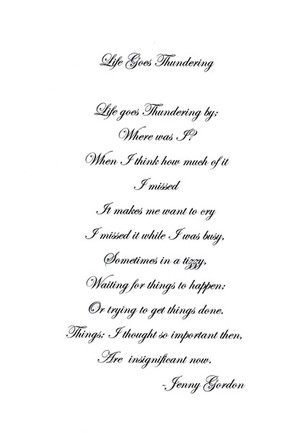 Life Goes Thundering
Life goes Thundering by:
Where was I?
When I think how much of it
I missed
It makes me want to cry
I missed it while I was busy,
Sometimes in a tizzy,
Waiting for things to happen:
Or trying to get things done.
Things: I thought so important then,
Are insignificant now.
-Jenny Gordon